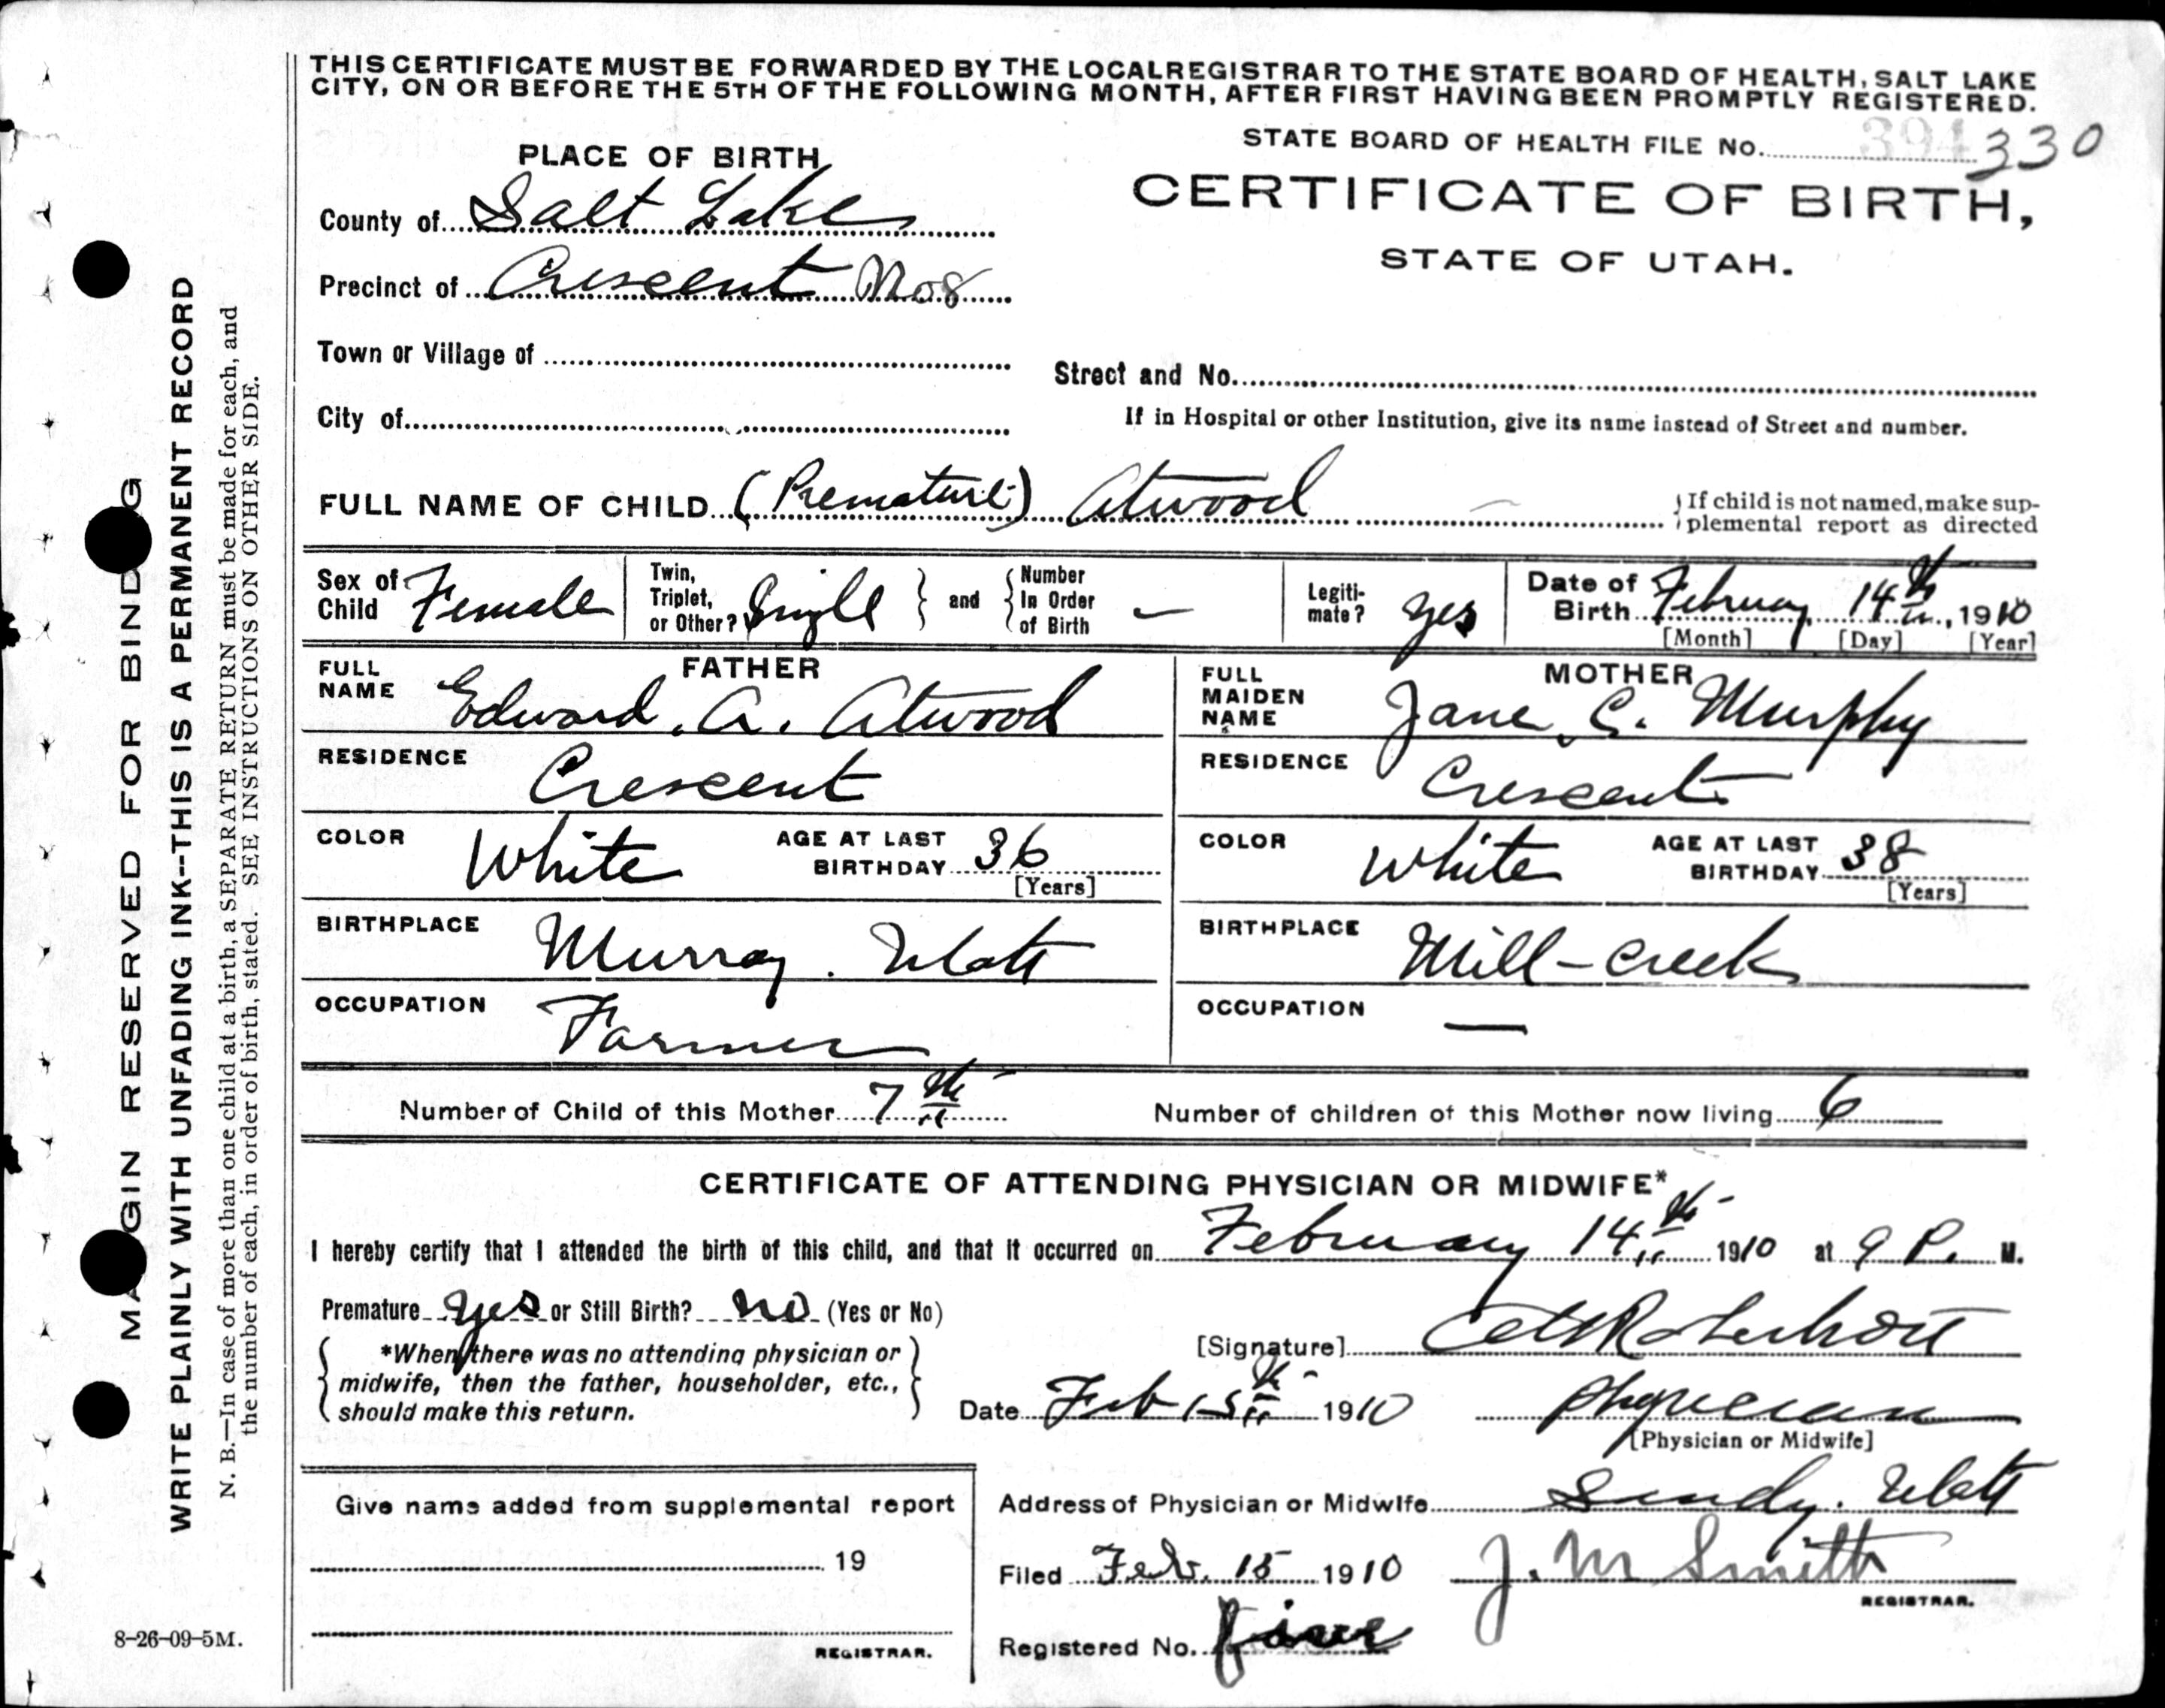 THIS CERTIFICATE MUST BE FORWARDED BY THE LOCAL REGISTRAR TO THE STATE BOARD OF HEALTH, SALT LAKE
CITY, ON OR BEFORE THE 5TH OF THE FOLLOWING MONTH, AFTER FIRST HAVING BEEN PROMPTLY REGISTERED.
STATE BOARD OF HEALTH FILE No. 394 330
PLACE OF BIRTH
CERTIFICATE OF BIRTH,
STATE OF UTAH.
County of Salt Lake
Precinct of Crescent No 8
Town or Village of
Street and No.
City of
If in Hospital or other Institution, give its name instead of Street and number.
FULL NAME OF CHILD (Premature) Atwood
If child is not named, make sup-
plemental report as directed
Sex of Child Female
Twin, Triplet, or Other? Single
and
Number In Order of Birth —
Legiti-mate? Yes
Date of Birth February 14th, 1910
[Month] [Day] [Year]
FATHER
FULL NAME Edward. A. Atwood
RESIDENCE Crescent
COLOR White AGE AT LAST BIRTHDAY 36
[Years]
BIRTHPLACE Murray. Utah
OCCUPATION Farmer
MOTHER
FULL MAIDEN NAME Jane C. Murphy
RESIDENCE Crescent
COLOR White AGE AT LAST BIRTHDAY 38
[Years]
BIRTHPLACE Mill-creek
OCCUPATION —
Number of Child of this Mother 7th
Number of children of this Mother now living 6
CERTIFICATE OF ATTENDING PHYSICIAN OR MIDWIFE*
I hereby certify that I attended the birth of this child, and that it occurred on February 14th 1910 at 9 P. M.
Premature Yes or Still Birth? No (Yes or No)
*When there was no attending physician or
midwife, then the father, householder, etc.,
should make this return.
[Signature]
Date Feb 15th 1910
Physician
[Physician or Midwife]
Give name added from supplemental report
19
REGISTRAR.
Address of Physician or Midwife Sandy. Utah
Filed Feb. 15 1910 J. M Smith
REGISTRAR.
Registered No. five
8-26-09-5M.
MARGIN RESERVED FOR BINDING
WRITE PLAINLY WITH UNFADING INK--THIS IS A PERMANENT RECORD
N. B.—In case of more than one child at a birth, a SEPARATE RETURN must be made for each, and
the number of each, in order of birth, stated. SEE INSTRUCTIONS ON OTHER SIDE.